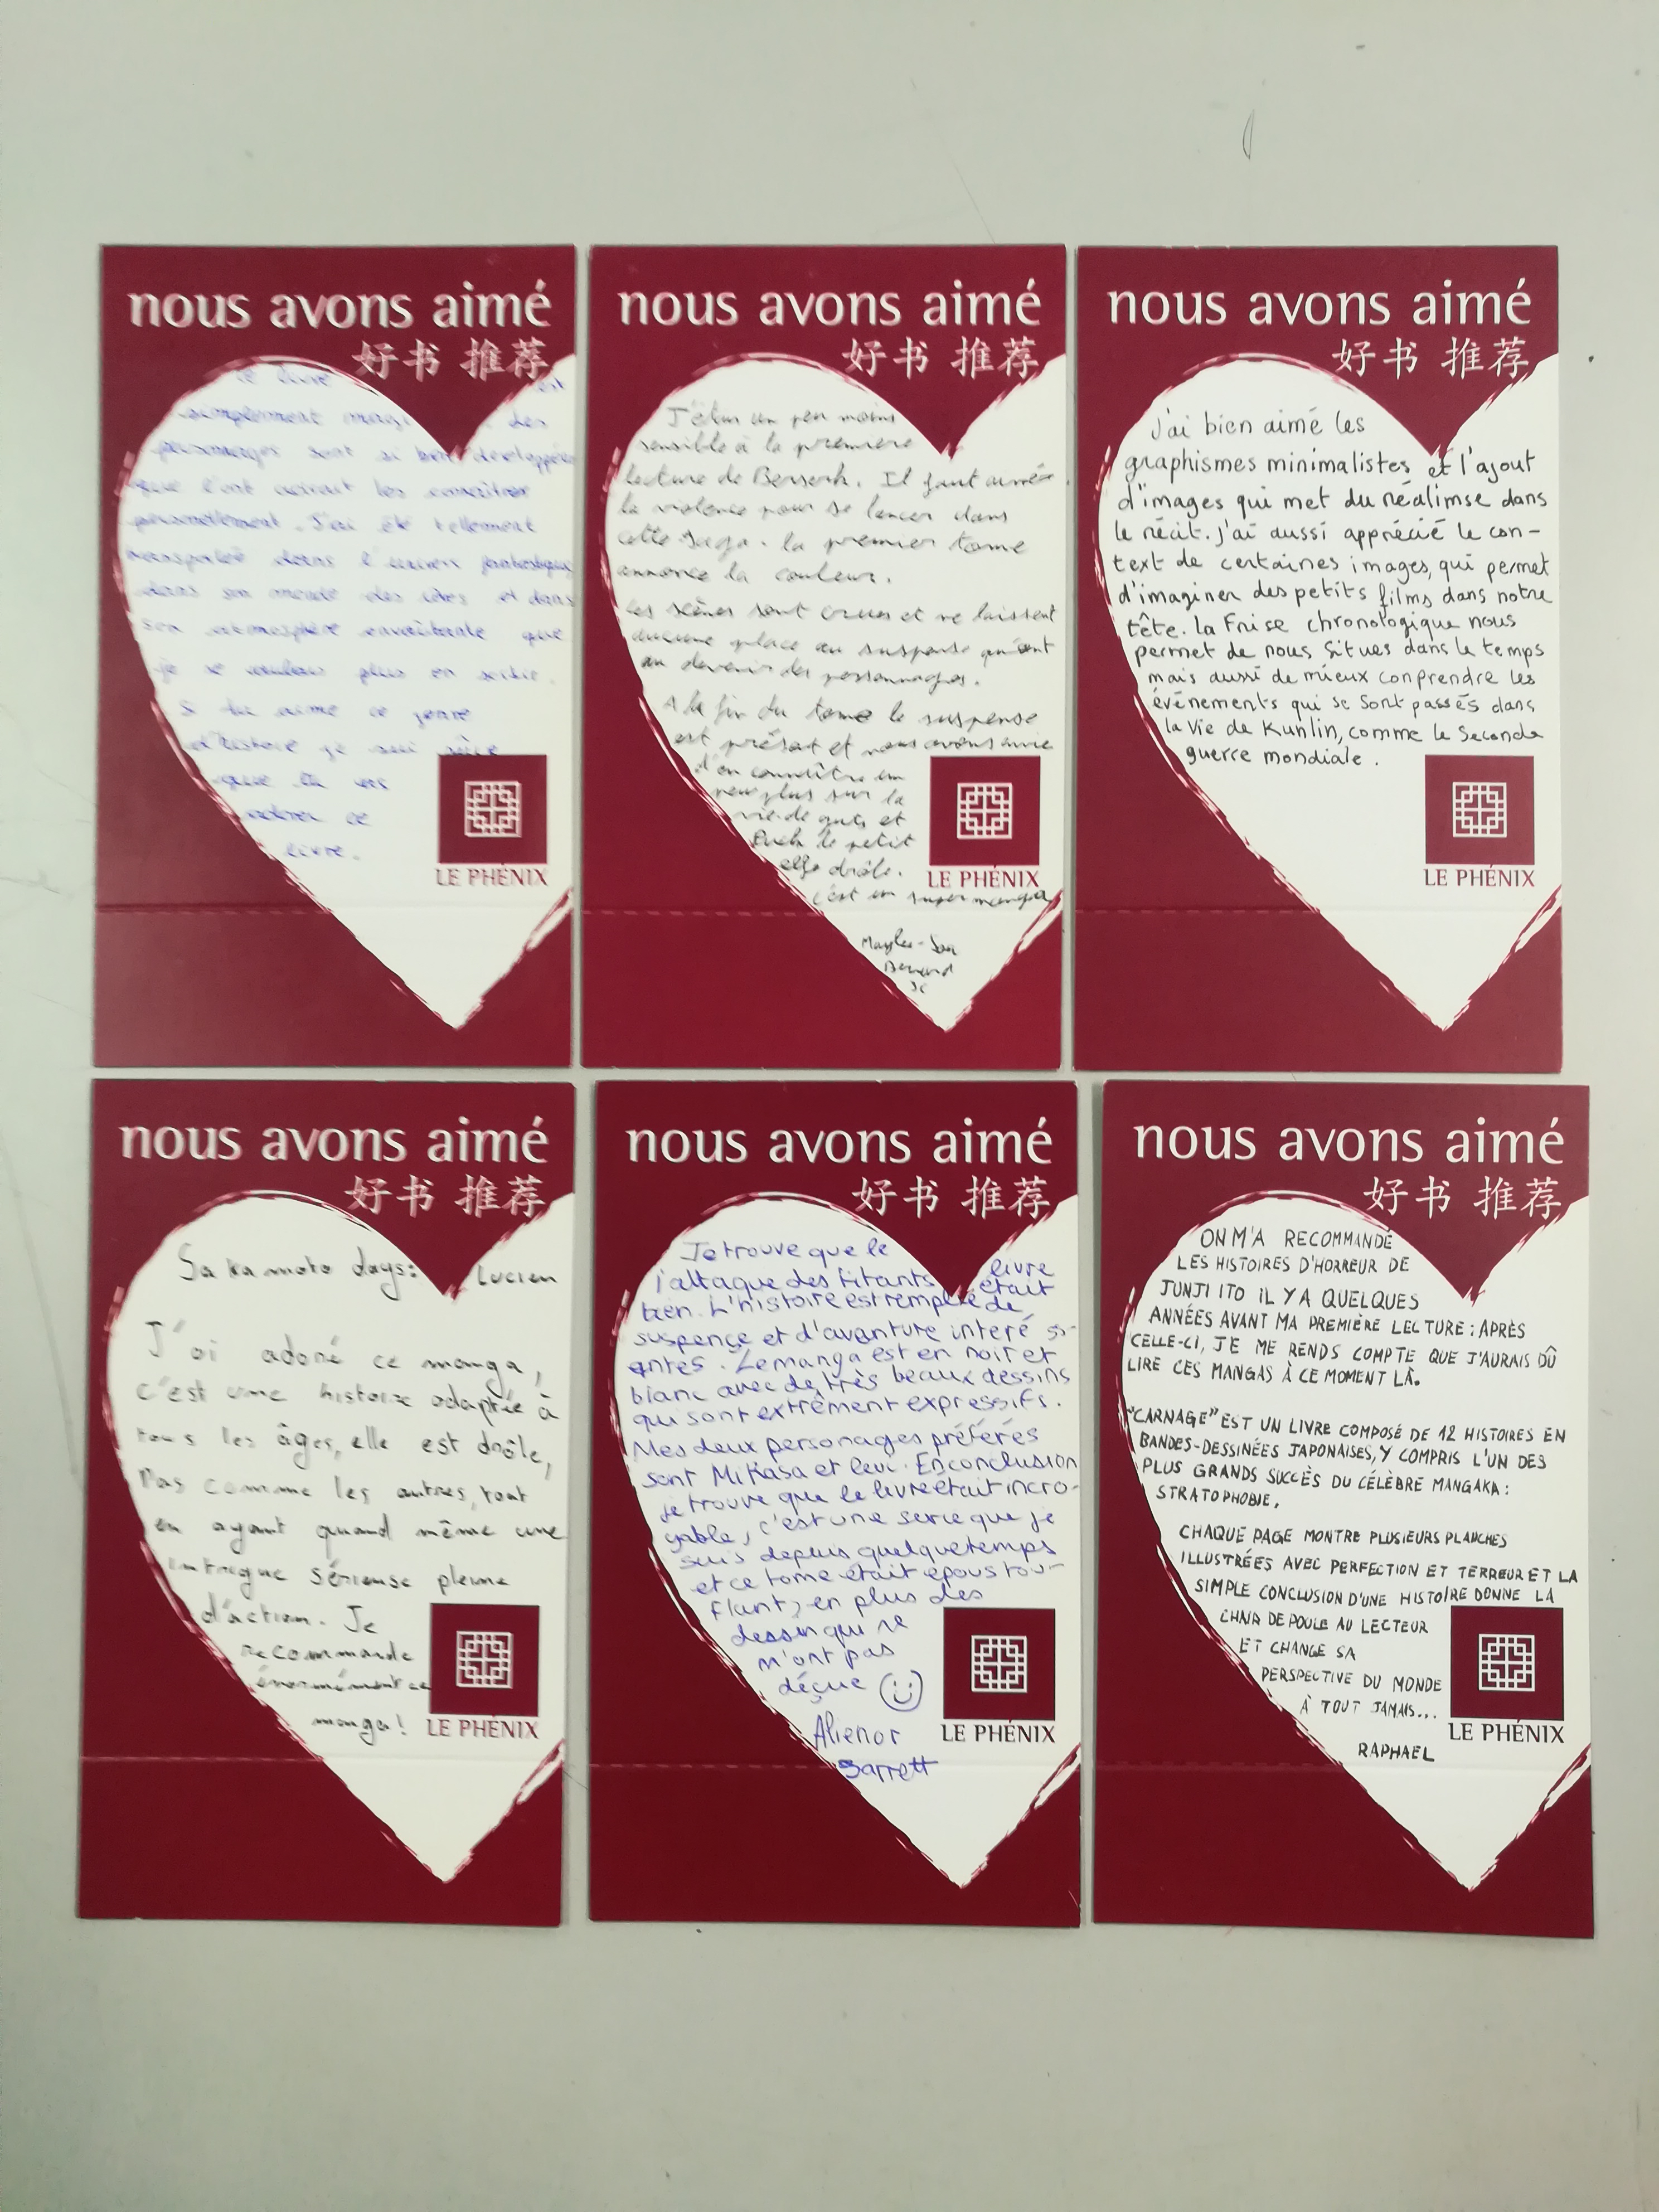 nous avons aimé
好书 推荐
ce livre est
simplement magi des
personnages sont si bien développés
que l'ont aurait les connaître
personellement. J'ai été tellement
transporteé dans l'univers fantastique
dans son monde des et dans
son atmosphère envoûtante que
je ne voulais plus en sortir.
Si tu aime ce genre
d'histoire je sui sûre
que tu vas
adorer ce
livre.
LE PHÉNIX
nous avons aimé
好书 推荐
J'étais un peu moins
sensible à la première
lecture de Berserk. Il faut aimer
la violence pour se lancer dans
cette saga. la premier tome
annonce la couleur.
Les scènes sont crues et ne laissent
aucune place au suspense quant
au devenir des personnages.
A la fin du tome le suspense
est présent et nous avons envie
d'en connaître un
peu plus sur la
vie de guts et
Puck le petit
elfe drôle.
c'est un super manga
Bernard
LE PHÉNIX
nous avons aimé
好书 推荐
J'ai bien aimé les
graphismes minimalistes et l'ajout
d'images qui met du réalimse dans
le récit. j'ai aussi apprécié le con-
text de certaines images, qui permet
d'imaginer des petits films dans notre
tête. la Frise chronologique nous
permet de nous situes dans le temps
mais aussi de mieux conprendre les
événements qui se sont passés dans
la vie de Kunlin, comme le Seconde
guerre mondiale.
LE PHÉNIX
nous avons aimé
好书 推荐
Sakamoto days: Lucien
J'ai adoré ce manga,
c'est une histoire adaptée à
tous les âges, elle est drôle,
Pas comme les autres, tout
en ayant quand même une
intrigue sérieuse pleine
d'action. Je
recommande
énormément ce
manga!
LE PHÉNIX
nous avons aimé
好书 推荐
Je trouve que le livre
l'attaque des titants était
bien. L'histoire est remplie de
suspençe et d'avanture interé ss-
antes. Le manga est en noir et
blanc avec de très beaux dessins
qui sont extrêment expressifs.
Mes deux personages préférés
sont Mikasa et levi. En conclusion
je trouve que le livre était incro-
yable, c'est une serie que je
suis depuis quelque temps
et ce tome était epous tou-
flant, en plus des
dessin qui ne
m'ont pas
déçue
Alienor
Barrett
LE PHÉNIX
nous avons aimé
好书 推荐
ON M'A RECOMMANDÉ
LES HISTOIRES D'HORREUR DE
JUNJI ITO IL Y A QUELQUES
ANNÉES AVANT MA PREMIÈRE LECTURE : APRÈS
CELLE-CI, JE ME RENDS COMPTE QUE J'AURAIS DÛ
LIRE CES MANGAS À CE MOMENT LÀ.
"CARNAGE" EST UN LIVRE COMPOSÉ DE 12 HISTOIRES EN
BANDES-DESSINÉES JAPONAISES, Y COMPRIS L'UN DES
PLUS GRANDS SUCCÈS DU CÉLÈBRE MANGAKA :
STRATOPHOBIE.
CHAQUE PAGE MONTRE PLUSIEURS PLANCHES
ILLUSTRÉES AVEC PERFECTION ET TERREUR ET LA
SIMPLE CONCLUSION D'UNE HISTOIRE DONNE LA
CHAIR DE POULE AU LECTEUR
ET CHANGE SA
PERSPECTIVE DU MONDE
À TOUT JAMAIS...
RAPHAEL
LE PHÉNIX